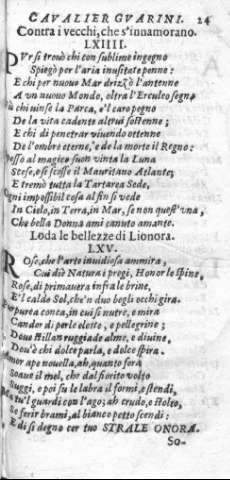 CAVALIER GVARINI. 24
Contra i vecchi, che s'innamorano.
LXIIII.
PVr si trouò chi con sublime ingegno
Spiegò per l'aria inusitate penne:
E chi per nuouo Mar drizzò l'antenne
A vn nuouo Mondo, oltra l'Erculeo segno
chi vinse la Parca, e'l caro pegno
De la vita cadente altrui sostenne;
E chi di penetrar viuendo ottenne
De l'ombre eterne, e de la morte il Regno:
esso al magico suon vinta la Luna
Scese, e si scosse il Mauritano Atlante;
E tremò tutta la Tartarea Sede,
gni impossibil cosa al fin si vede
In Cielo, in Terra, in Mar, se non quest'vna,
Che bella Donna ami canuto amante.
Loda le bellezze di Lionora.
LXV.
ROse, che l'arte inuidiosa ammira,
Cui diè Natura i pregi, Honor le spine,
Rose, di primauera infra le brine,
E'l caldo Sol, che'n duo begli occhi gira.
purea conca, in cui si nutre, e mira
Candor di perle elette, e pellegrine;
Doue stillan ruggiade alme, e diuine,
Dou'è chi dolce parla, e dolce spira.
mor ape nouella, ah, quanto fora
Soaue il mel, che dal fiorito volto
Suggi, e poi su le labra il formi, e stendi,
tu'l guardi con l'ago; ah crudo, e stolto,
Se ferir brami, al bianco petto scendi:
E di sì degno cor tuo STRALE ONORA.
So-